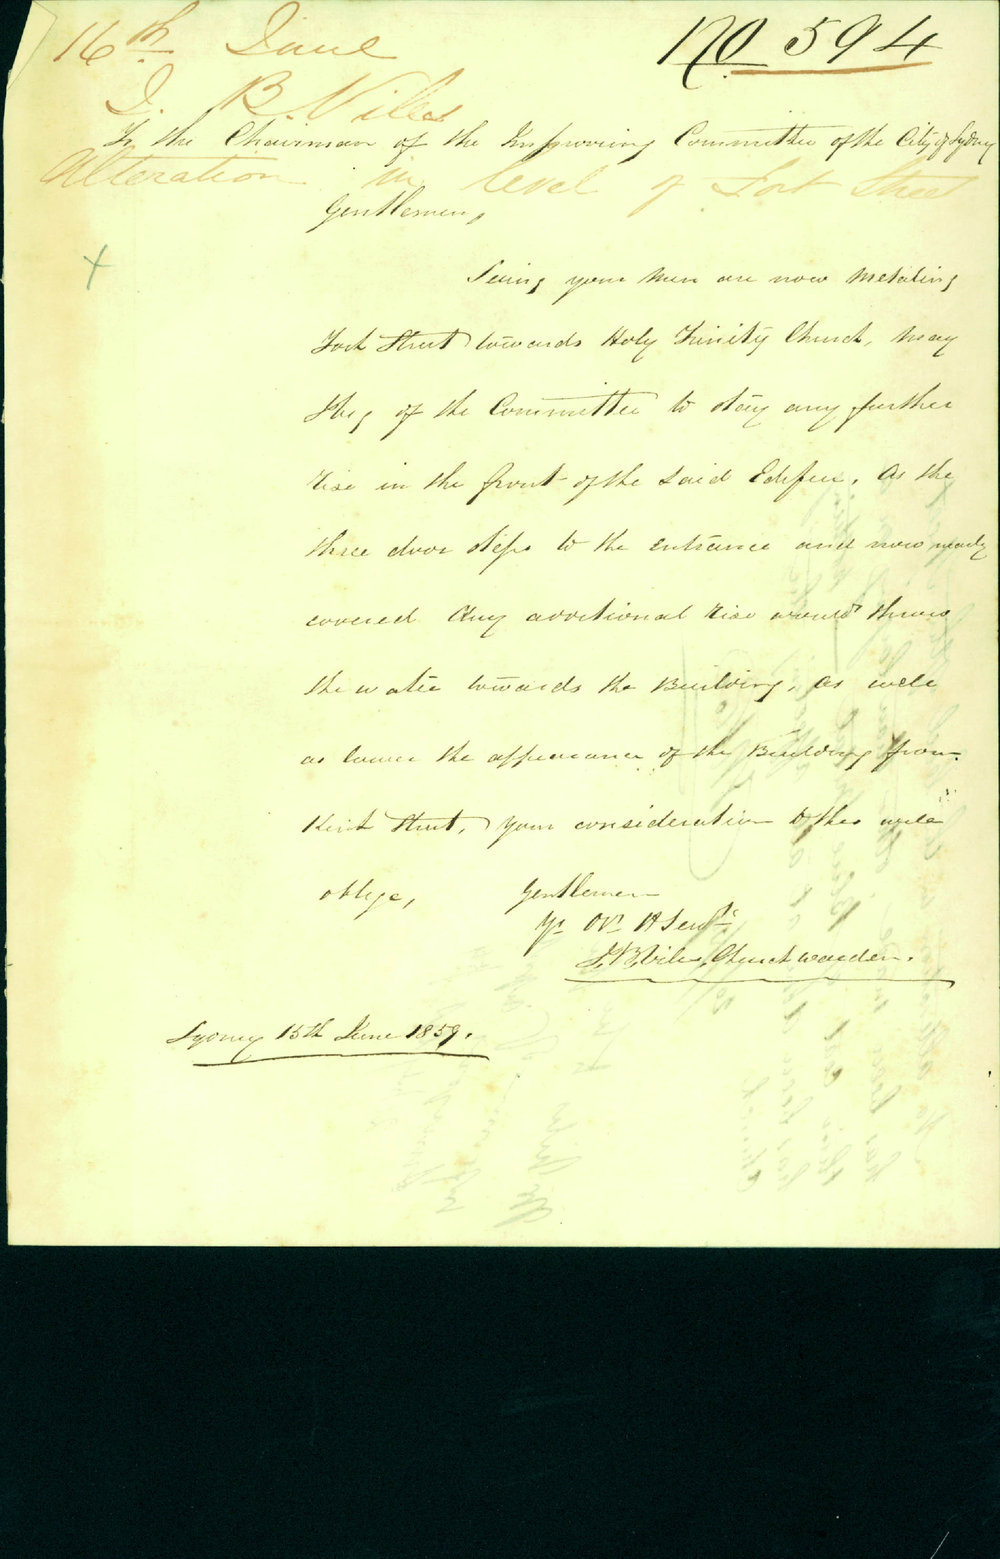 16th June
No 594
J. B. Viles
To the Chairman of the Improving Committee of the City of Sydney
Alteration in level of Fort Street
Gentlemen,
Seeing your men are now Metaling
Fort Street towards Holy Trinity Church, may
I beg of the Committee to stay any further
rise in the front of the said Edifice, as the
three door steps to the entrance and now nearly
covered Any additional rise would throw
the water towards the Building, as well
as lower the appearance of the Building from
Kent Street, your consideration to this will
oblige, Gentlemen
Yr Obt H Servt
J B Viles, Church warden.
Sydney 15th June 1859.